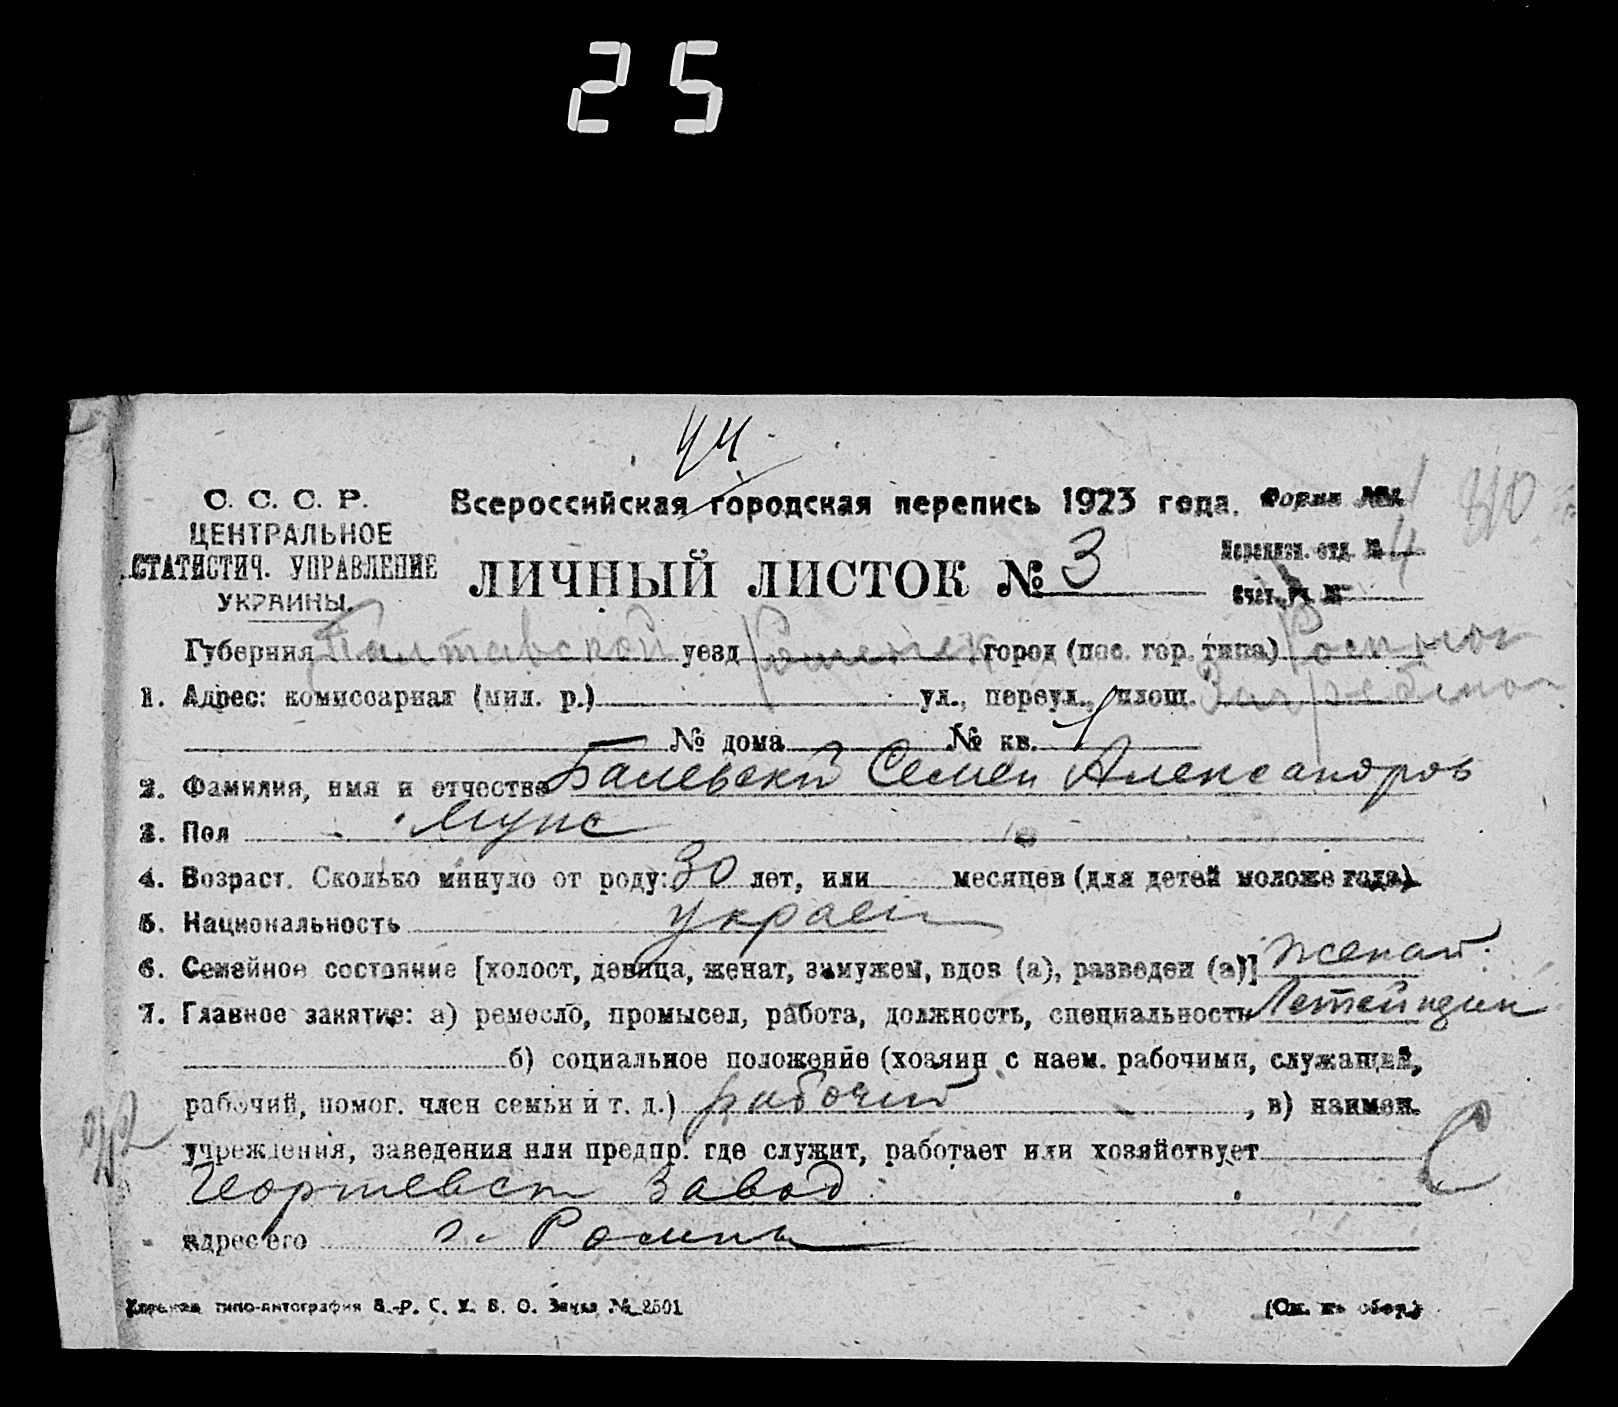 25
44
С. С. С. Р.
ЦЕНТРАЛЬНОЕ
СТАТИСТИЧ. УПРАВЛЕНИЕ
УКРАИНЫ.
Всероссийская городская перепись 1923 года.
Форма №1
ЛИЧНЫЙ ЛИСТОК № 3
Переписн. отд. № 4
Счет. уч. №
Губерния Полтавской уезд Роменск город (пос. гор. типа)
1. Адрес: комиссариат (мил. р.) ул., переул., площ.
№ дома № кв. 1
2. Фамилия, имя и отчество Балевский Семен Александров
3. Пол Мужс
4. Возраст. Сколько минуло от роду: 30 лет, или месяцев (для детей моложе года).
5. Национальность украен
6. Семейное состояние [холост, девица, женат, замужем, вдов (а), разведен (а)] женат.
7. Главное занятие: а) ремесло, промысел, работа, должность, специальность Летейщик
б) социальное положение (хозяин с наем. рабочими, служащий,
рабочий, помог. член семьи и т. д.) рабочий , в) наимен.
учреждения, заведения или предпр. где служит, работает или хозяйствует
завод
адрес его г. Ромны
типо-литография З.-Р. С. Х. В. О. Заказ № 2501
(См. на обор.)